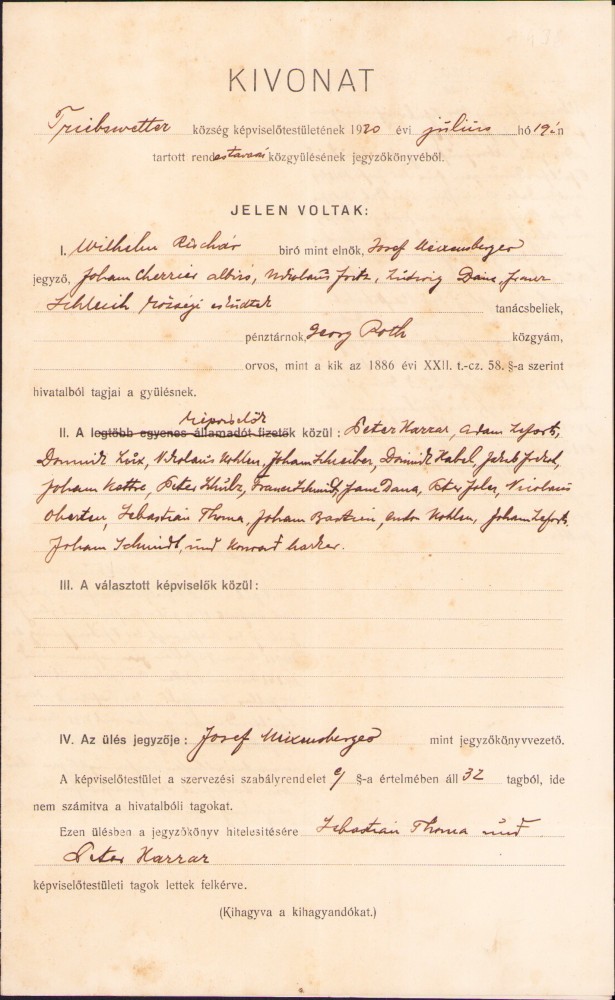 KIVONAT
Triebswetter község képviselőtestületének 1920 évi július hó 19én
tartott rendes tavaszi közgyülésének jegyzőkönyvéből.
JELEN VOLTAK:
I. Wilhelm Rischár biró mint elnök, Josef Mixemsberger
jegyző, Johann Cherrier albiró, Nikolaus Fritz, Ludwig Dana, Franz
Schleich községi esküdtek tanácsbeliek,
pénztárnok, Georg Roth közgyám,
orvos, mint a kik az 1886 évi XXII. t.-cz. 58. §-a szerint
hivatalból tagjai a gyülésnek.
képviselők
II. A legtöbb egyenes államadót fizetők közül : Peter Harrar, Adam Lefort,
Dominik Lux, Nikolaus Kohlen, Johann Schreiber, Dominik Kabel, Jakob
Johann Peter Schulz, Franz Schmidt, Dana, Peter Nicolaus
Oberten, Sebastian Thoma, Johann Anton Kohlen, Johann Lefort
Johann Schmidt, und Konrad
III. A választott képviselők közül :
IV. Az ülés jegyzője : Josef Mixemsberger mint jegyzőkönyvvezető.
A képviselőtestület a szervezési szabályrendelet §-a értelmében áll 32 tagból, ide
nem számitva a hivatalbóli tagokat.
Ezen ülésben a jegyzőkönyv hitelesitésére Sebastian Thoma und
Peter Harrar
képviselőtestületi tagok lettek felkérve.
(Kihagyva a kihagyandókat.)